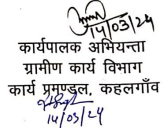 14/03/24
कार्यपालक अभियन्ता
ग्रामीण कार्य विभाग
कार्य प्रमण्डल, कहलगाँव
14/03/24